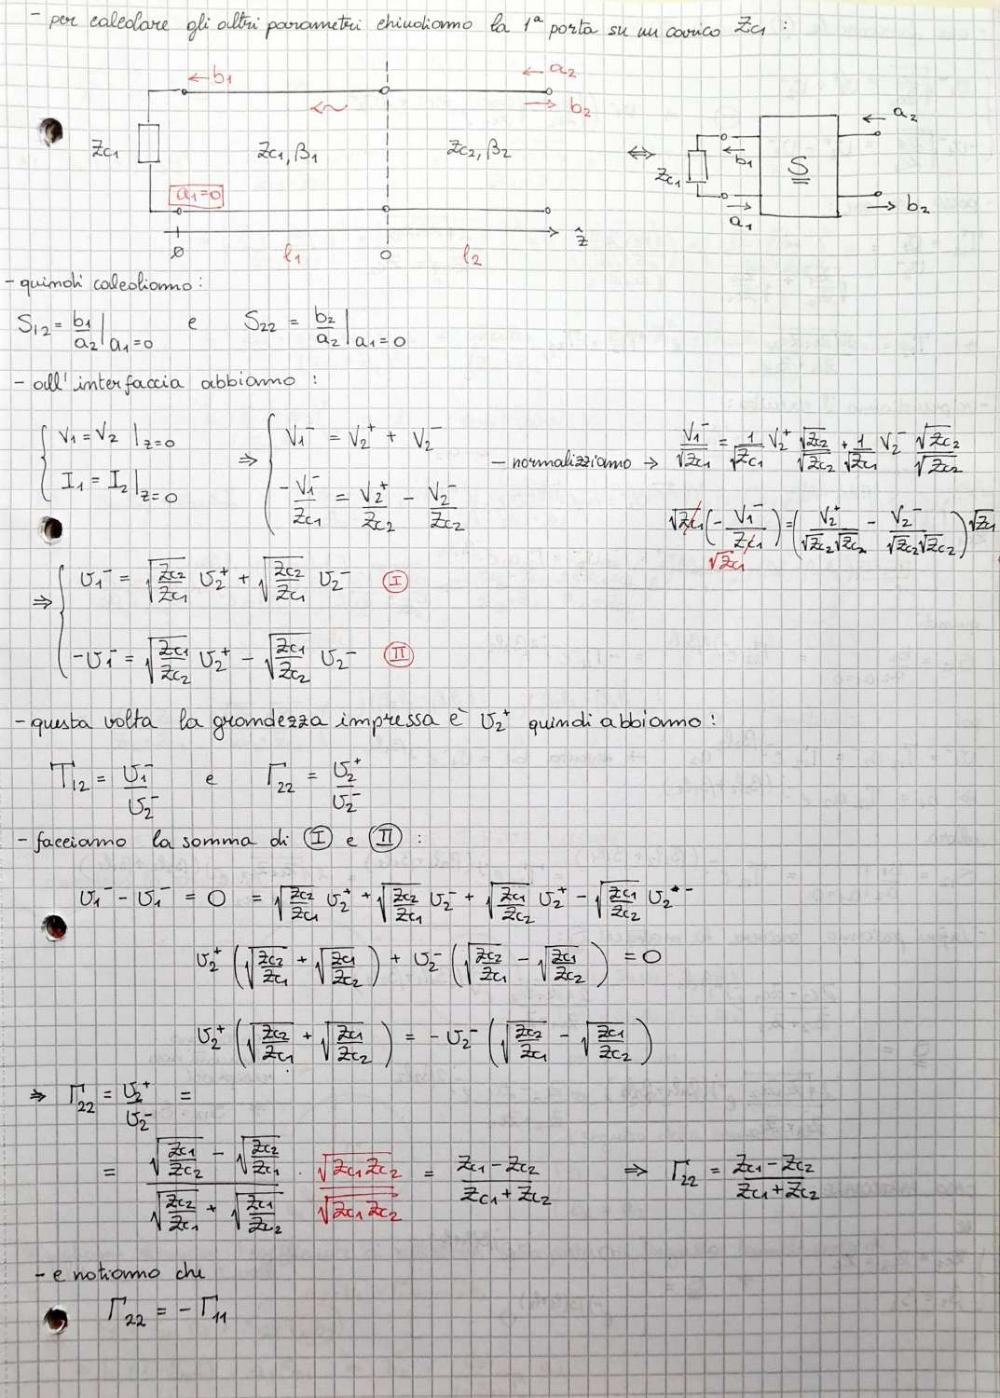 - per calcolare gli altri parametri chiudiamo la 1ª porta su un carico Zc1 :
← b1
← a2
→ b2
Zc1
Zc1, β1
Zc2, β2
a1=0
∅
l1
0
l2
ẑ
⇔
Zc1
b1
a1
S
a2
b2
- quindi calcoliamo :
S12 = b1/a2 |a1=0 e S22 = b2/a2 |a1=0
- all'interfaccia abbiamo :
{ V1 = V2 |z=0
I1 = I2 |z=0
⇒ { V1⁻ = V2⁺ + V2⁻
-V1⁻/Zc1 = V2⁺/Zc2 - V2⁻/Zc2
- normalizziamo → V1⁻/√Zc1 = 1/√Zc1 V2⁺ √Zc2/√Zc2 + 1/√Zc1 V2⁻ √Zc2/√Zc2
√Zc1 (- V1⁻/Zc1) = (V2⁺/√Zc2√Zc2 - V2⁻/√Zc2√Zc2) √Zc1
√Zc1
⇒ { υ1⁻ = √(Zc2/Zc1) υ2⁺ + √(Zc2/Zc1) υ2⁻ (I)
-υ1⁻ = √(Zc1/Zc2) υ2⁺ - √(Zc1/Zc2) υ2⁻ (II)
- questa volta la grandezza impressa è υ2⁺ quindi abbiamo :
T12 = υ1⁻/υ2⁻ e Γ22 = υ2⁺/υ2⁻
- facciamo la somma di (I) e (II) :
υ1⁻ - υ1⁻ = 0 = √(Zc2/Zc1) υ2⁺ + √(Zc2/Zc1) υ2⁻ + √(Zc1/Zc2) υ2⁺ - √(Zc1/Zc2) υ2⁻
υ2⁺ (√(Zc2/Zc1) + √(Zc1/Zc2)) + υ2⁻ (√(Zc2/Zc1) - √(Zc1/Zc2)) = 0
υ2⁺ (√(Zc2/Zc1) + √(Zc1/Zc2)) = - υ2⁻ (√(Zc2/Zc1) - √(Zc1/Zc2))
⇒ Γ22 = υ2⁺/υ2⁻ =
= (√(Zc1/Zc2) - √(Zc2/Zc1))/(√(Zc2/Zc1) + √(Zc1/Zc2)) · √(Zc1 Zc2)/√(Zc1 Zc2) = (Zc1 - Zc2)/(Zc1 + Zc2) ⇒ Γ22 = (Zc1 - Zc2)/(Zc1 + Zc2)
- e notiamo che
Γ22 = - Γ11